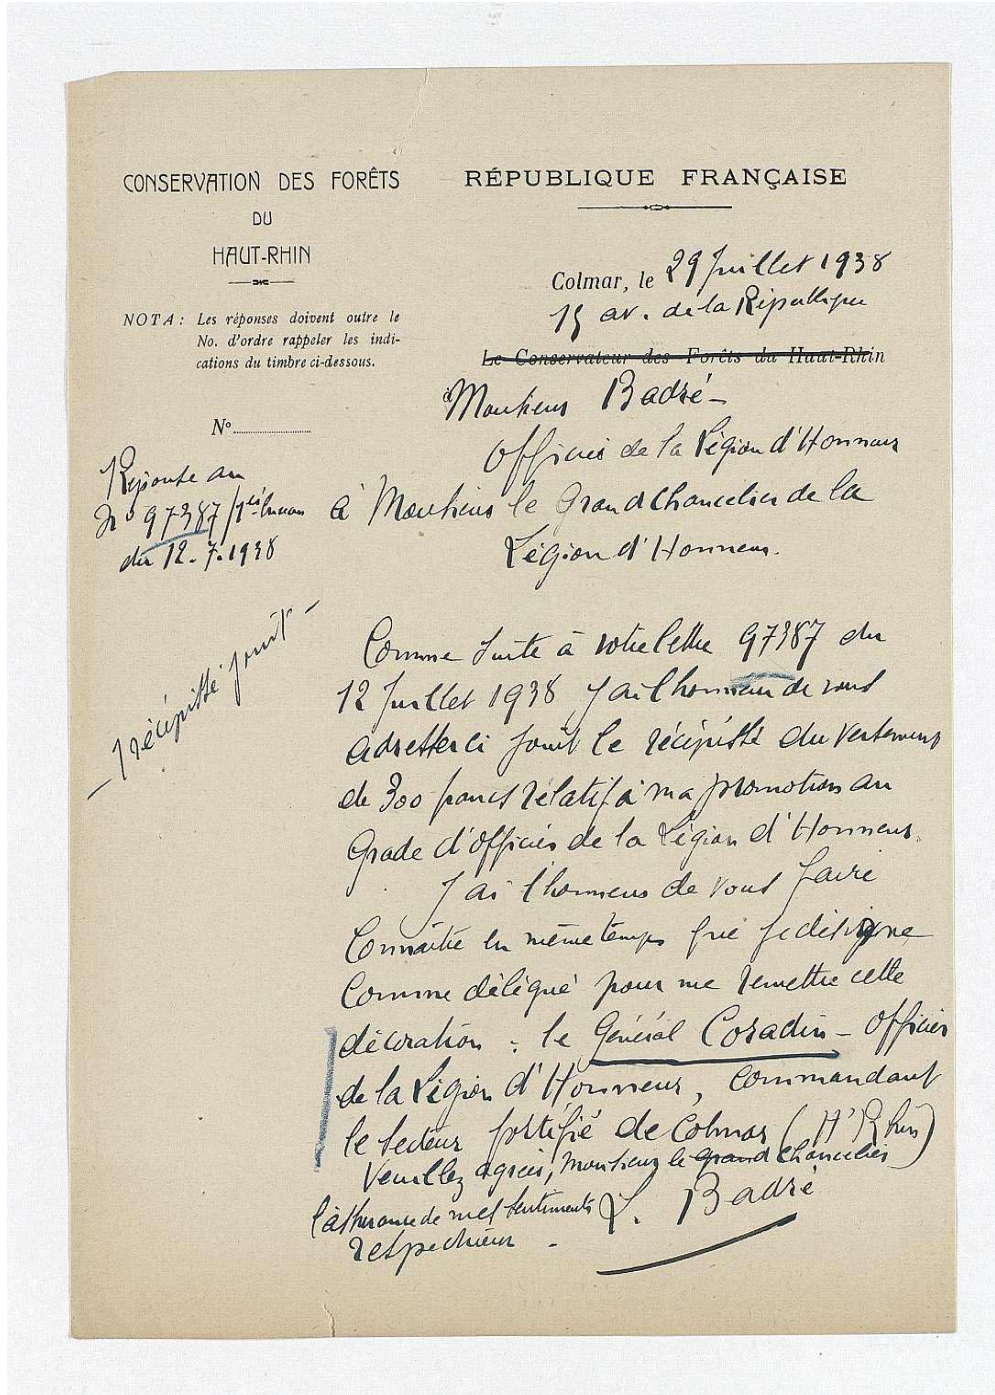 CONSERVATION DES FORÊTS
DU
HAUT-RHIN
NOTA: Les réponses doivent outre le
No. d'ordre rappeler les indi-
cations du timbre ci-dessous.
No
Réponse au
No 97387
du 12.7.1938
– récépissé joint –
RÉPUBLIQUE FRANÇAISE
Colmar, le 29 Juillet 1938
15 av. de la République
Le Conservateur des Forêts du Haut-Rhin
Monsieur Badré –
Officier de la Légion d'Honneur
à Monsieur le Grand Chancelier de la
Légion d'Honneur.
Comme suite à votre lettre 97387 du
12 Juillet 1938 J'ai l'honneur de vous
adresser ci joint le récépissé du versement
de 300 francs relatif à ma promotion au
Grade d'officier de la Légion d'Honneur.
J'ai l'honneur de vous faire
Connaître en même temps que je désigne
Comme délégué pour me remettre cette
décoration : le Général Coradin – officier
de la Légion d'Honneur, Commandant
le secteur fortifié de Colmar (Ht Rhin)
Veuillez agréer, Monsieur le grand Chancelier
l'assurance de mes sentiments
respectueux –
L. Badré